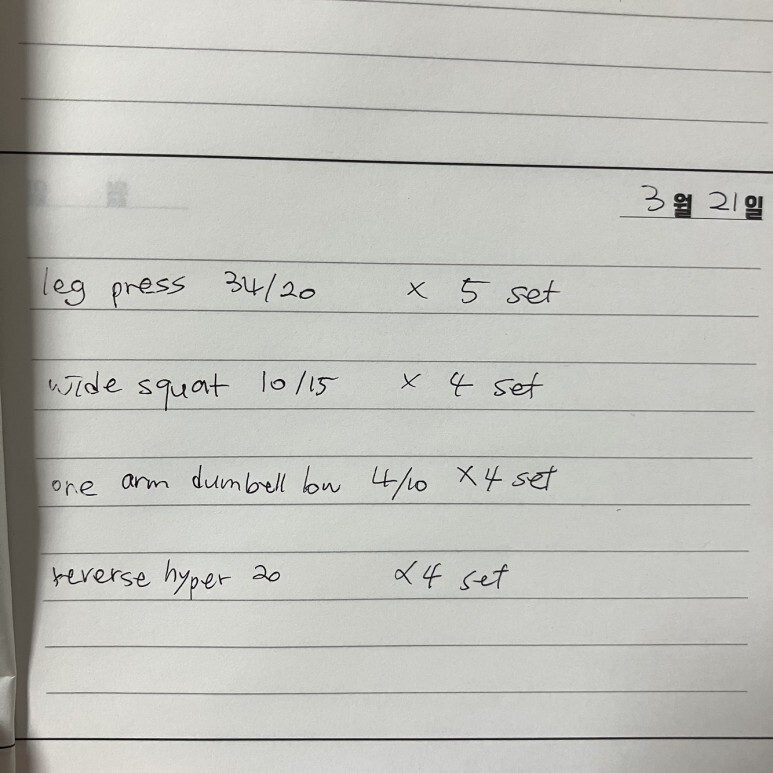 3월 21일
leg press 34/20 x 5 set
wide squat 10/15 x 4 set
one arm dumbell low 4/10 x 4 set
reverse hyper 20 x 4 set